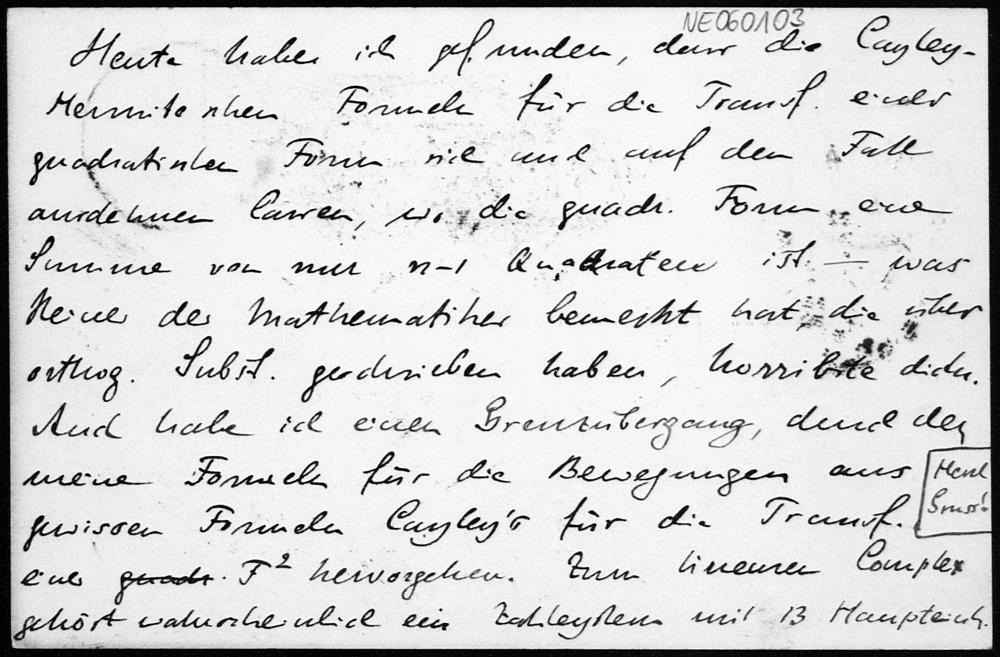 NE060103
Heute habe ich gefunden, dass die Cayley-
Hermiteschen Formeln für die Transf. einer
quadratischen Form sich auch auf den Fall
ausdehnen lassen, wo die quadr. Form eine
Summe von nur n-1 Quadraten ist. — was
keiner der Mathematiker bemerkt hat, die über
orthog. Subst. geschrieben haben, horribile dictu.
Auch habe ich einen Grenzübergang, durch den
meine Formeln für die Bewegungen aus
gewissen Formeln Cayley's für die Transf.
einer quadr. F² hervorgehen. Zum linearen Complex
gehört wahrscheinlich ein Zahlsystem mit 13 Haupteinh.
Herzl
Gruss!